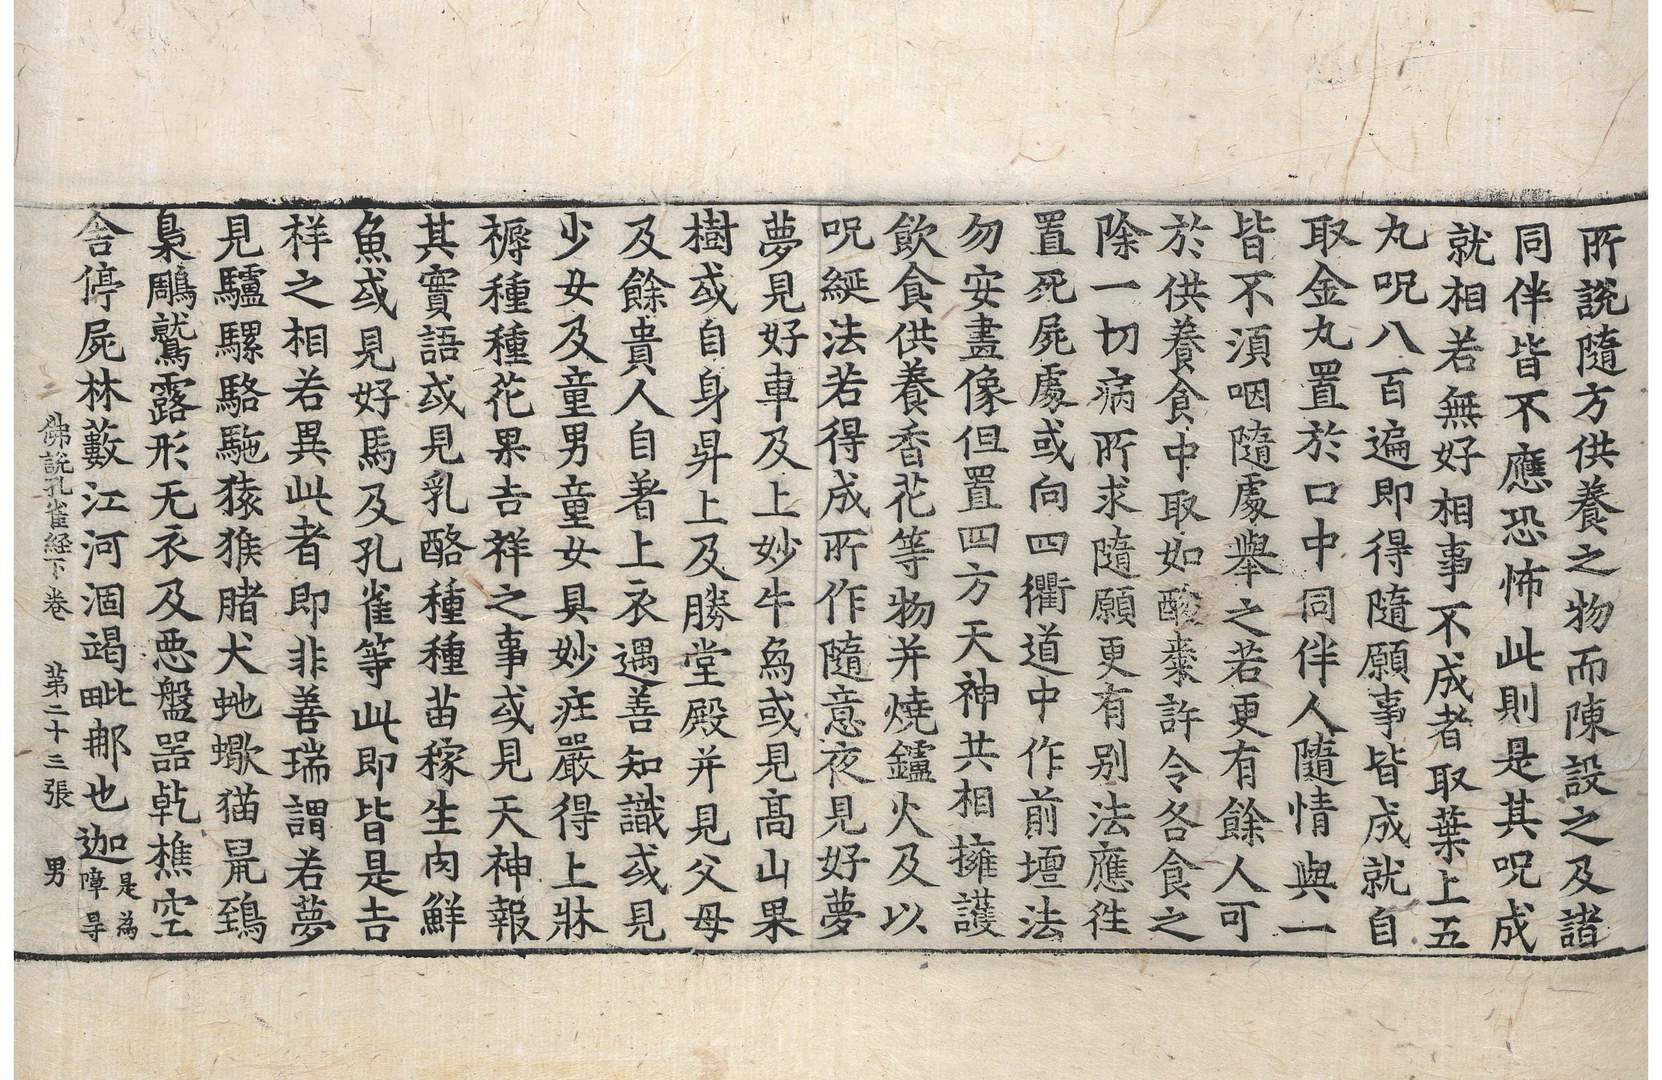 所說隨方供養之物而陳設之及諸
同伴皆不應恐怖此則是其呪成
就相若無好相事不成者取葉上五
丸呪八百遍即得隨願事皆成就自
取金丸置於口中同伴人隨情與一
皆不湏咽隨處舉之若更有餘人可
於供養食中取如酸棗許令各食之
除一切病所求隨願更有别法應徃
置死屍處或向四衢道中作前壇法
勿安畫像但置四方天神共相擁護
飲食供養香花等物并燒鑪火及以
呪綖法若得成所作隨意夜見好夢
夢見好車及上妙牛爲或見高山果
樹或自身昇上及勝堂殿并見父母
及餘貴人自著上衣遇善知識或見
少女及童男童女具妙疰嚴得上牀
褥種種花果吉祥之事或見天神報
其實語或見乳酪種種苗稼生肉鮮
魚或見好馬及孔雀等此即皆是吉
祥之相若異此者即非善瑞謂若夢
見驢騾駱駞猿猴腤犬虵蠍猫鼠鵄
梟鵰鷲露形无衣及悪盤器乹樵空
舍停屍林藪江河涸竭毗那也迦是為障㝵
佛說孔雀経下卷 苐二十三張 男